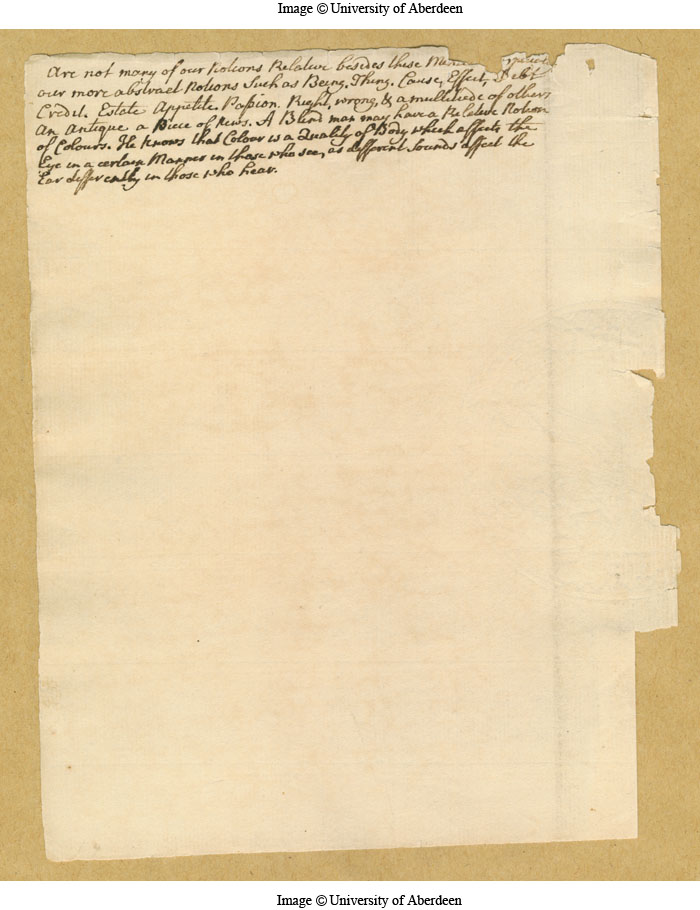 Image © University of Aberdeen
Are not many of our Notions Relative besides these
our more abstract Notions Such as Being, Thing, Cause, Effect, Debt
Credit. Estate Appetite. Passion. Right, wrong, & a multitude of others
An Antique a Piece of News. A Blind man may have a Relative Notion
of Colours. He knows that Colour is a Quality of Body which affects the
Eye in a certain Manner in those who see, as different Sounds affect the
Ear differently in those who hear.
Image © University of Aberdeen